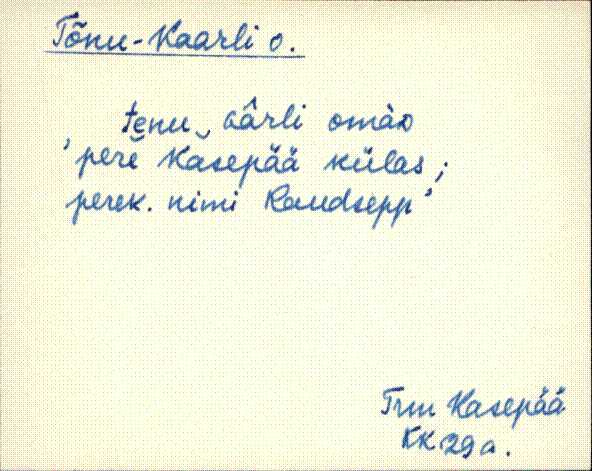 Tõnu-Kaarli o.
tenu‿aârli omàᴅ
'perè Kasepää külas;
perek. nimi Raudsepp'
Trm Kasepää
KK 29a.